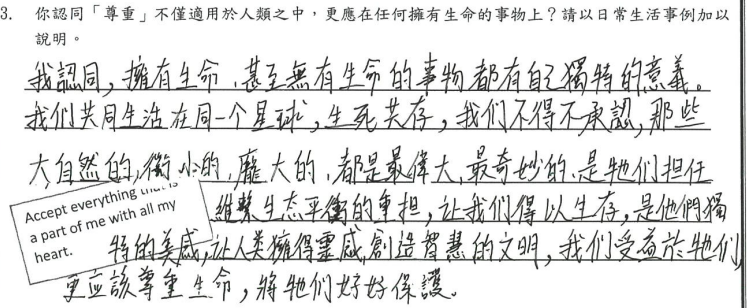 3. 你認同「尊重」不僅適用於人類之中，更應在任何擁有生命的事物上？請以日常生活事例加以
說明。
我認同，擁有生命、甚至無有生命的事物都有自己獨特的意義。
我们共同生活在同一个星球，生死共存，我们不得不承認，那些
大自然的，微小的，龐大的，都是最偉大，最奇妙的，是牠们担任
維繫生态平衡的重担，让我們得以生存，是他們獨
特的美感，让人类擁得靈感，創造智慧的文明，我们受益於牠们，
更应該尊重生命，將牠们好好保護。
Accept everything that is
a part of me with all my
heart.